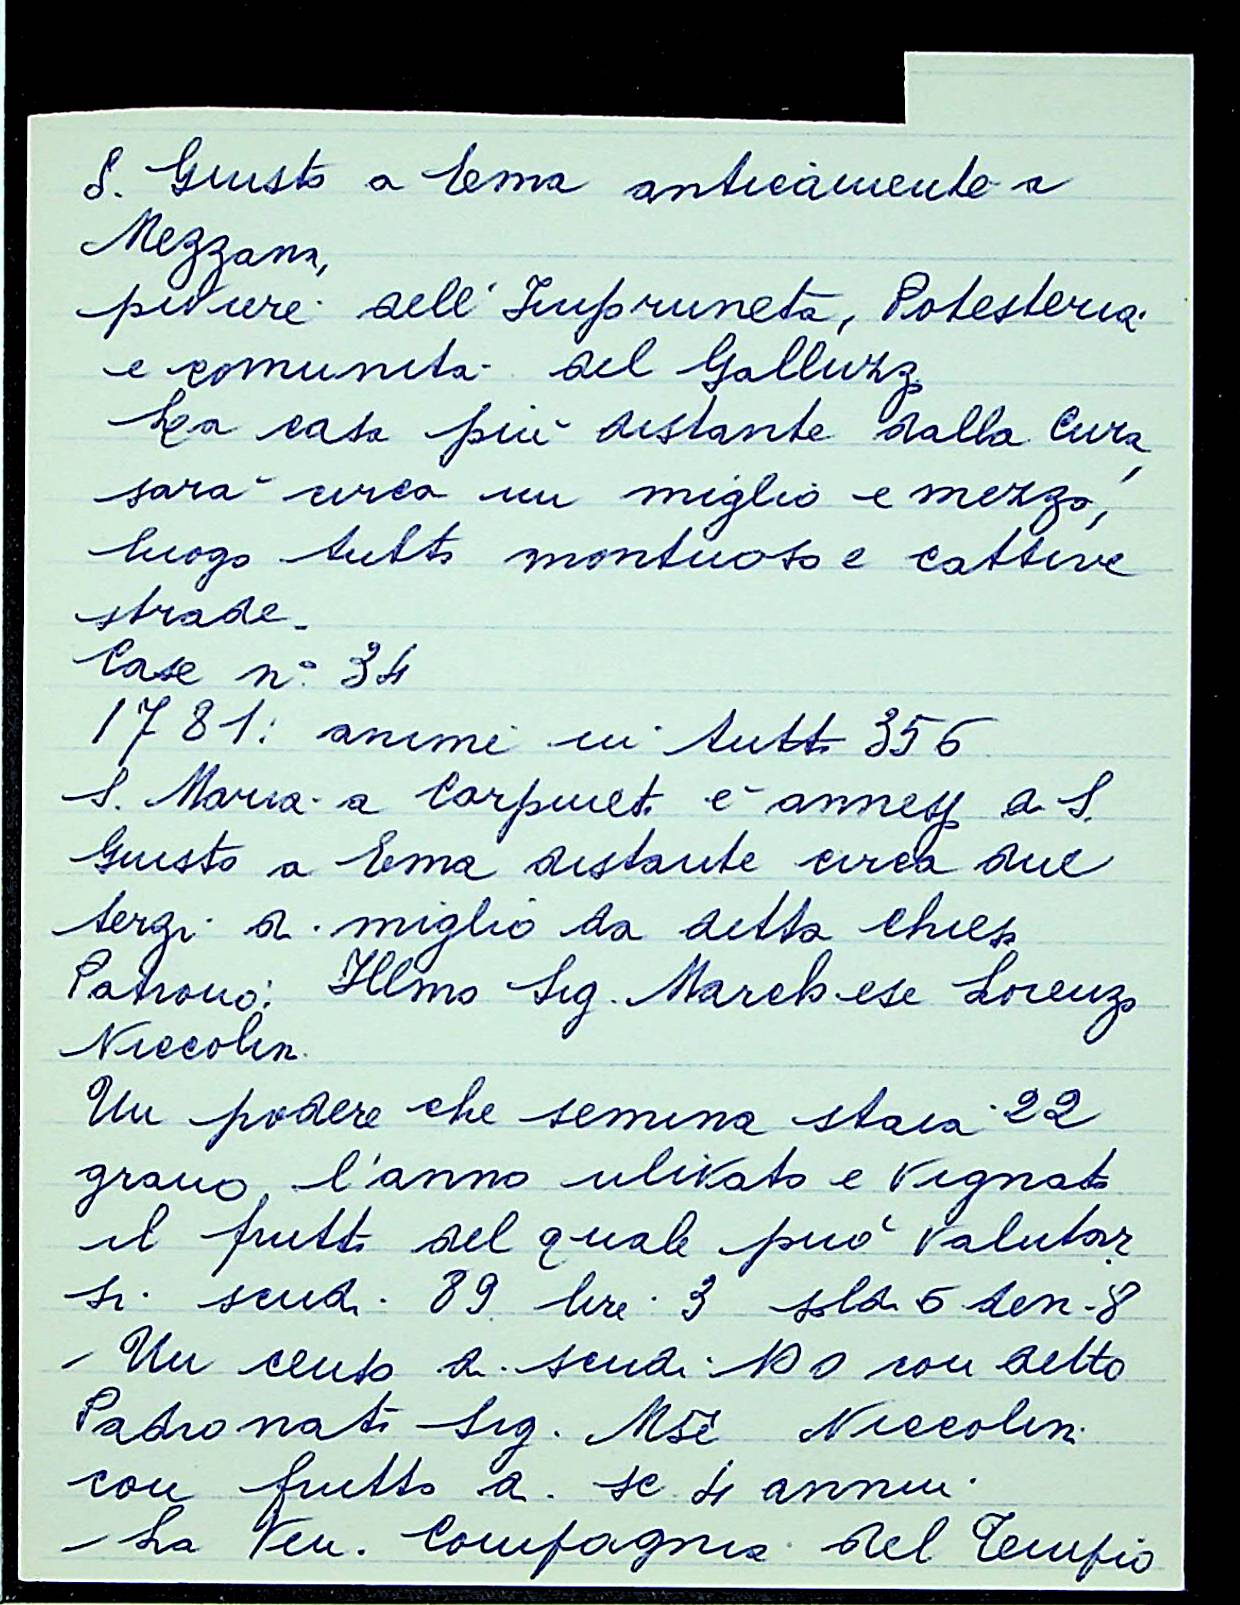 S. Giusto a Ema anticamente a
Mezzana,
piviere dell'Impruneta, Potesteria
e comunità del Galluzzo
La casa più distante dalla Cura,
sarà circa un miglio e mezzo,
luogo tutto montuoso e cattive
strade.
Case n° 34
1781: anime in tutto 356
S. Maria a Carpineto è annessa a S.
Giusto a Ema distante circa due
terzi di miglio da detta chiesa
Patrono: Illmo Sig. Marchese Lorenzo
Niccolini
Un podere che semina staia 22
grano, l'anno ulivato e vignato
il frutto del quale può valutar
si scudi 89 lire 3 soldi 6 den. 8
- Un censo di scudi 100 con detto
Padronato Sig. Mse Niccolini
con frutto di sc. 4 annui
- La Ven. Compagnia del Tempio